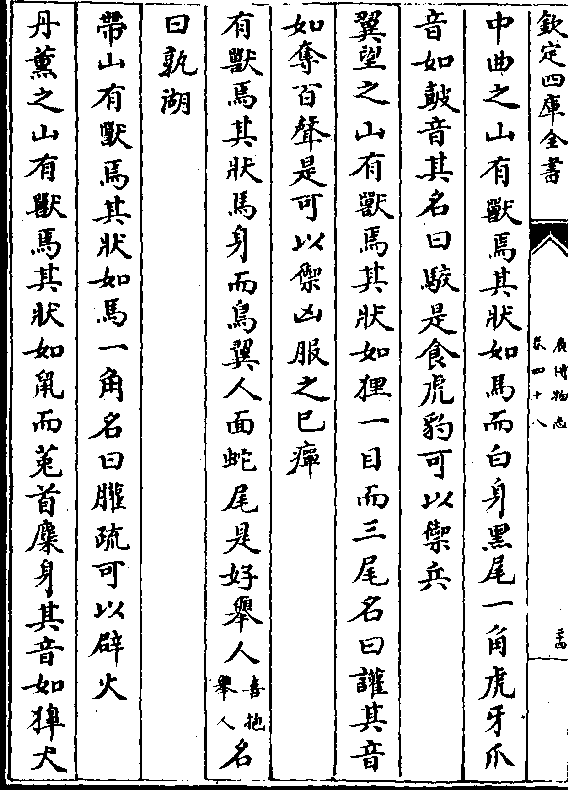 欽定四庫全書
廣博物志
卷四十八
中曲之山有獸焉其狀如馬而白身黑尾一角虎牙爪
音如鼓音其名曰駮是食虎豹可以禦兵
翼望之山有獸焉其狀如狸一目而三尾名曰讙其音
如奪百聲是可以禦凶服之已癉
有獸焉其狀馬身而鳥翼人面蛇尾是好舉人喜抱舉人名
曰孰湖
帶山有獸焉其狀如馬一角名曰䑏疏可以辟火
丹熏之山有獸焉其狀如鼠而菟首麋身其音如獆犬